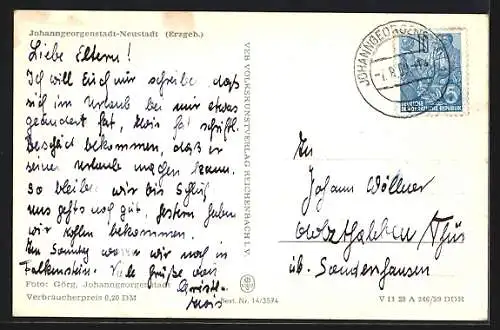 Johanngeorgenstadt-Neustadt (Erzgeb.)
Liebe Eltern!
Ich will Euch nur schreibe, daß
sich im Urlaub bei mir etwas
geändert hat, Alois hat schriftl.
Bescheid bekommen, daß er
seinen Urlaub machen kann.
so bleiben wir bis Schluß
uns gehts noch gut, gestern haben
wir Kohlen bekommen.
Am Sonntag waren wir noch in
Falkenstein. Viele Grüße von
Christl-
Alois
Foto: Görg, Johanngeorgenstadt
Verbraucherpreis 0,20 DM
Best. Nr. 14/3594
VEB VOLKSKUNSTVERLAG REICHENBACH I. V.
JOHANNGEORGENSTADT
DEUTSCHE
DEMOKRATISCHE REPUBLIK
5
An
Johann Wöllner
Holzthaleben/Thür
üb. Sondershausen
V 11 28 A 246/59 DDR